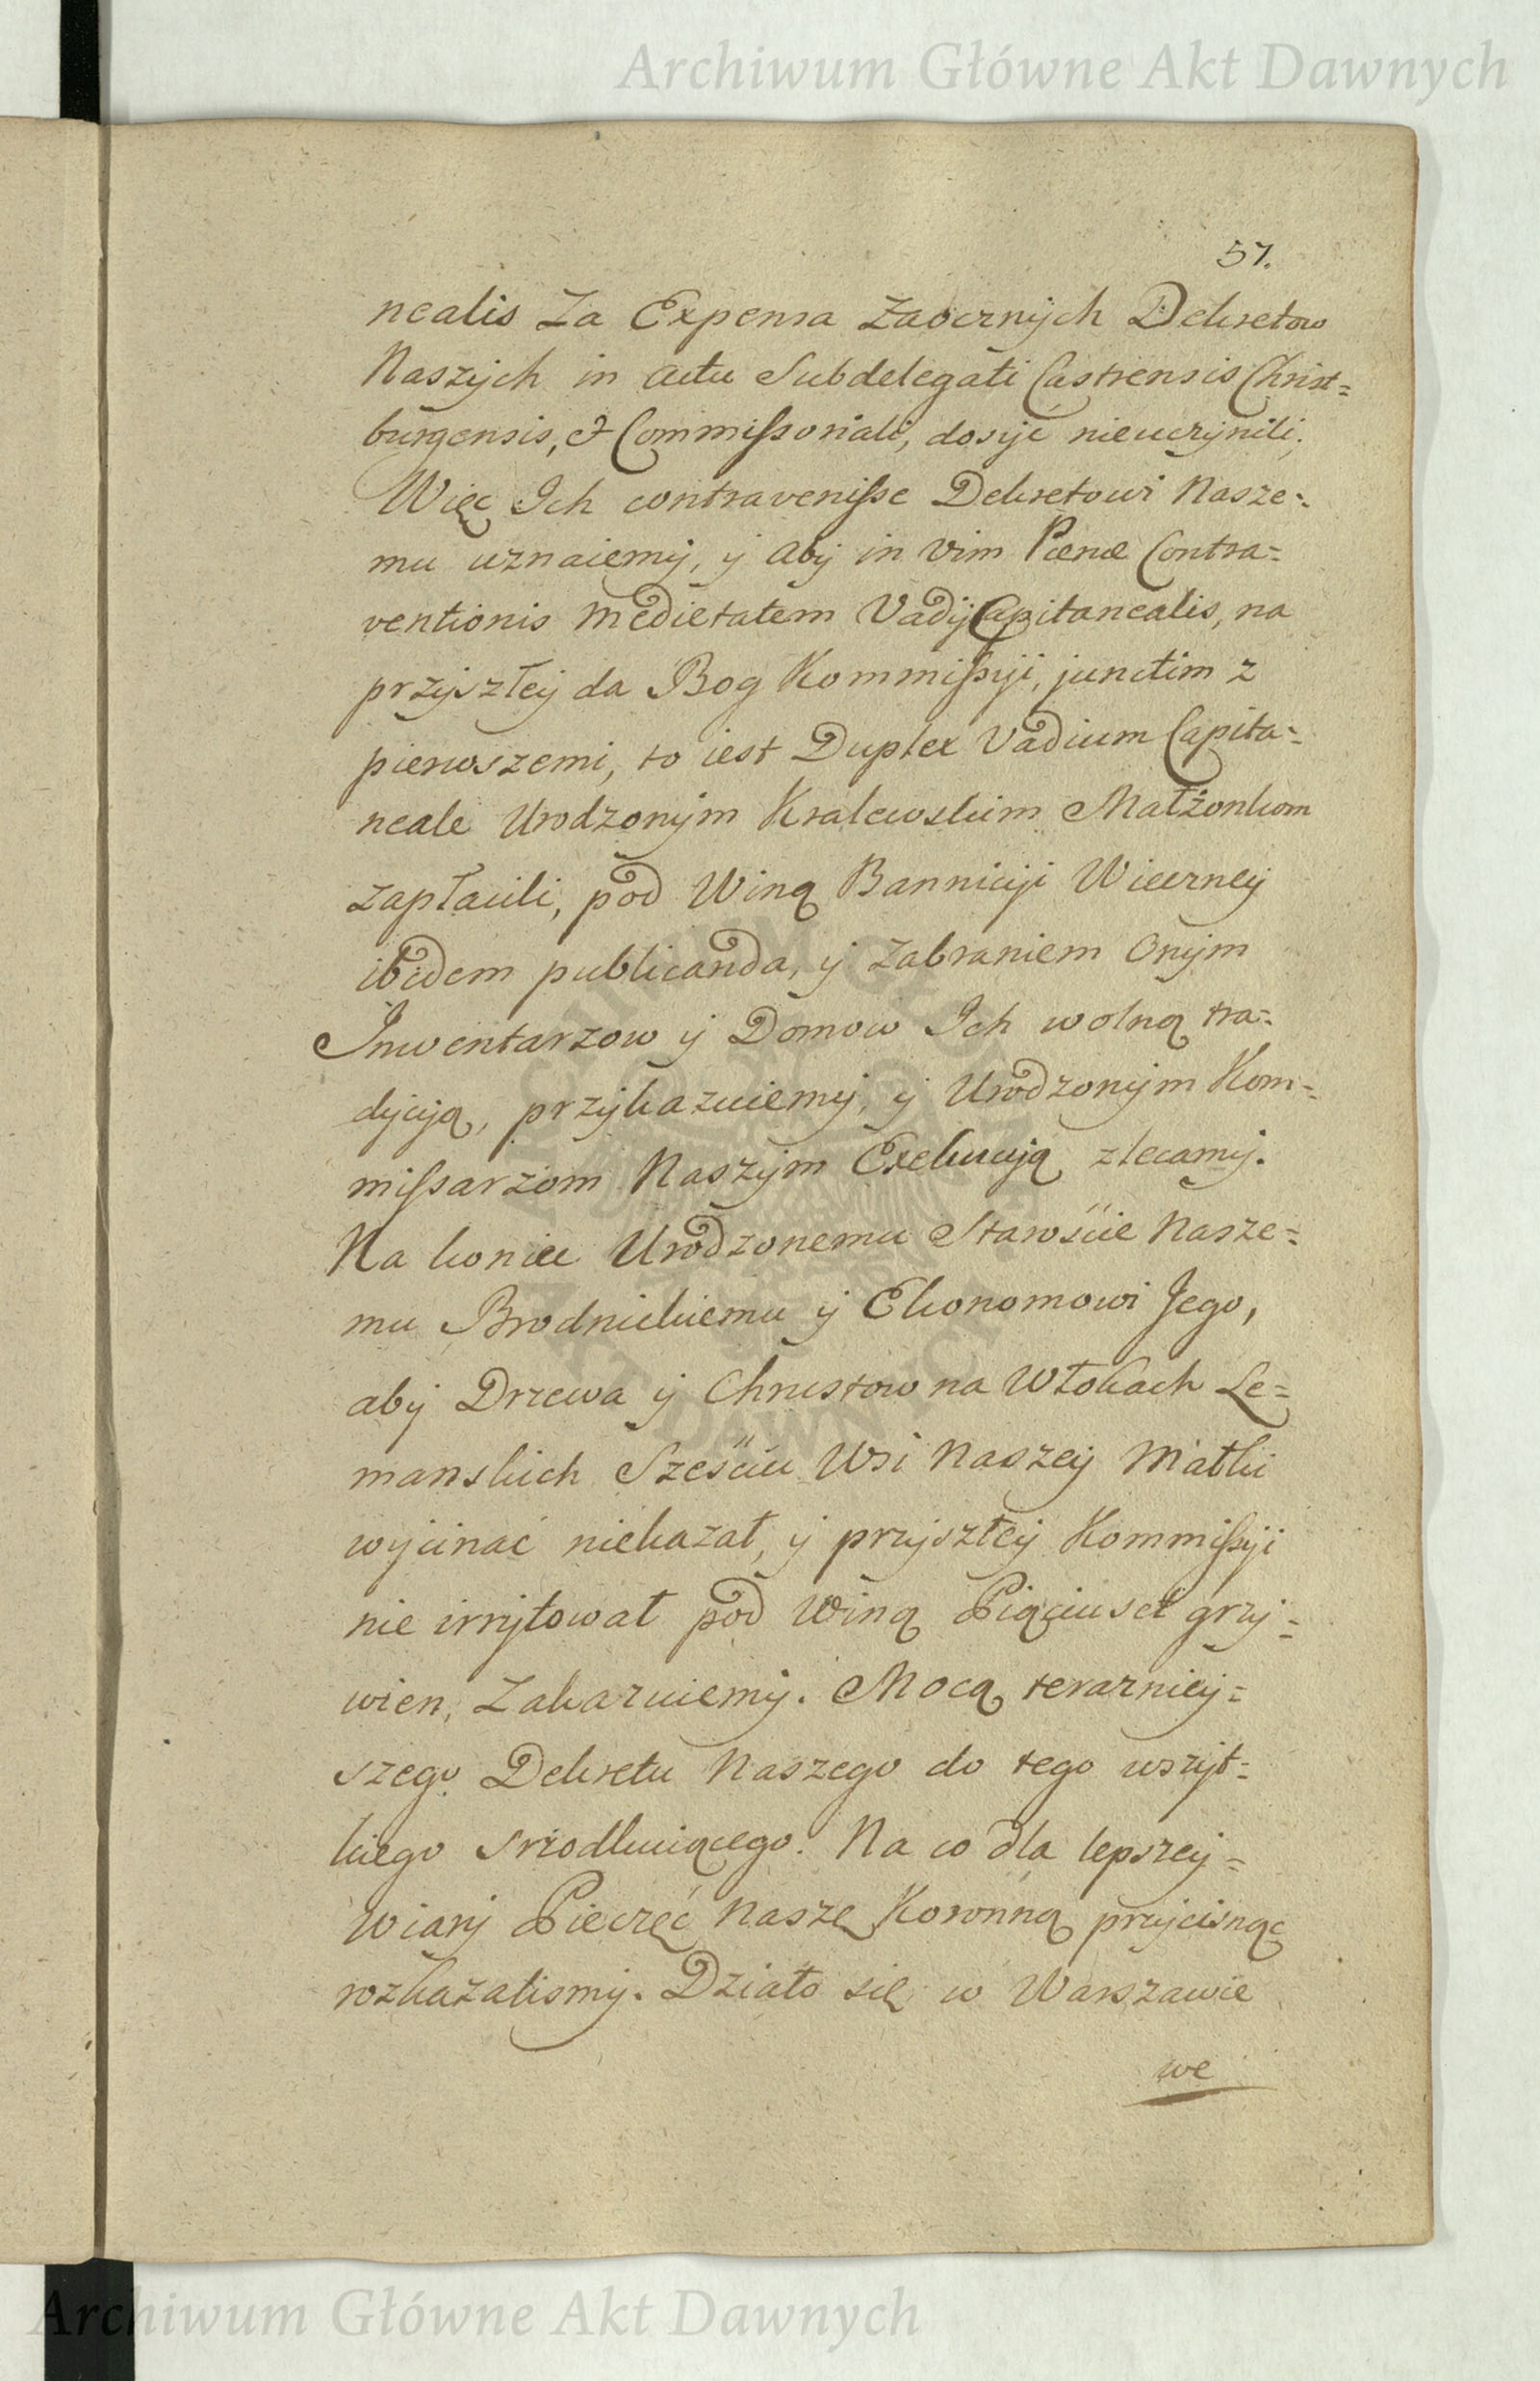 Archiwum Główne Akt Dawnych
57.
nealis Za Expensa Zaocznych Dekretow
Naszych in actu Subdelegati Castrensis Christ=
burgensis, et Commissoriali, dosyć nieuczynili;
Więc Ich contravenisse Dekretowi Nasze=
mu uznaiemy, y aby in vim Pœnæ Contra=
ventionis medietatem Vadij Capitanealis, na
przyszłey da Bog Kommissyi, junctim z
pierwszemi, to iest Duplex Vadium Capita=
neale Urodzonym Kralewskim Małżonkom
zapłacili, pod Winą Bannicyi Wieczney
ibidem publicanda, y zabraniem Onym
Inwentarzow y Domow Ich wolną tra=
dycyą, przykazuiemy, y Urodzonym Kom=
missarzom Naszym Exekucyą zlecamy.
Na koniec Urodzonemu Staroście Nasze=
mu Brodnickiemu y Ekonomowi Jego,
aby Drzewa y Chrustow na Włokach Le=
manskich Sześciu Wsi Naszey Małki
wycinać niekazał, y przyszłey Kommissyi
nie irrytował pod Winą Pięciuset grzy=
wien, Zakazuiemy. Mocą terazniey=
szego Dekretu Naszego do tego wszyt=
kiego srzodkuiącego. Na co dla lepszey=
Wiary Pieczęć Naszę Koronną przycisnąć
rozkazalismy. Działo się w Warszawie
we
ARCHIWUM GŁÓWNE AKT DAWNYCH
Archiwum Główne Akt Dawnych